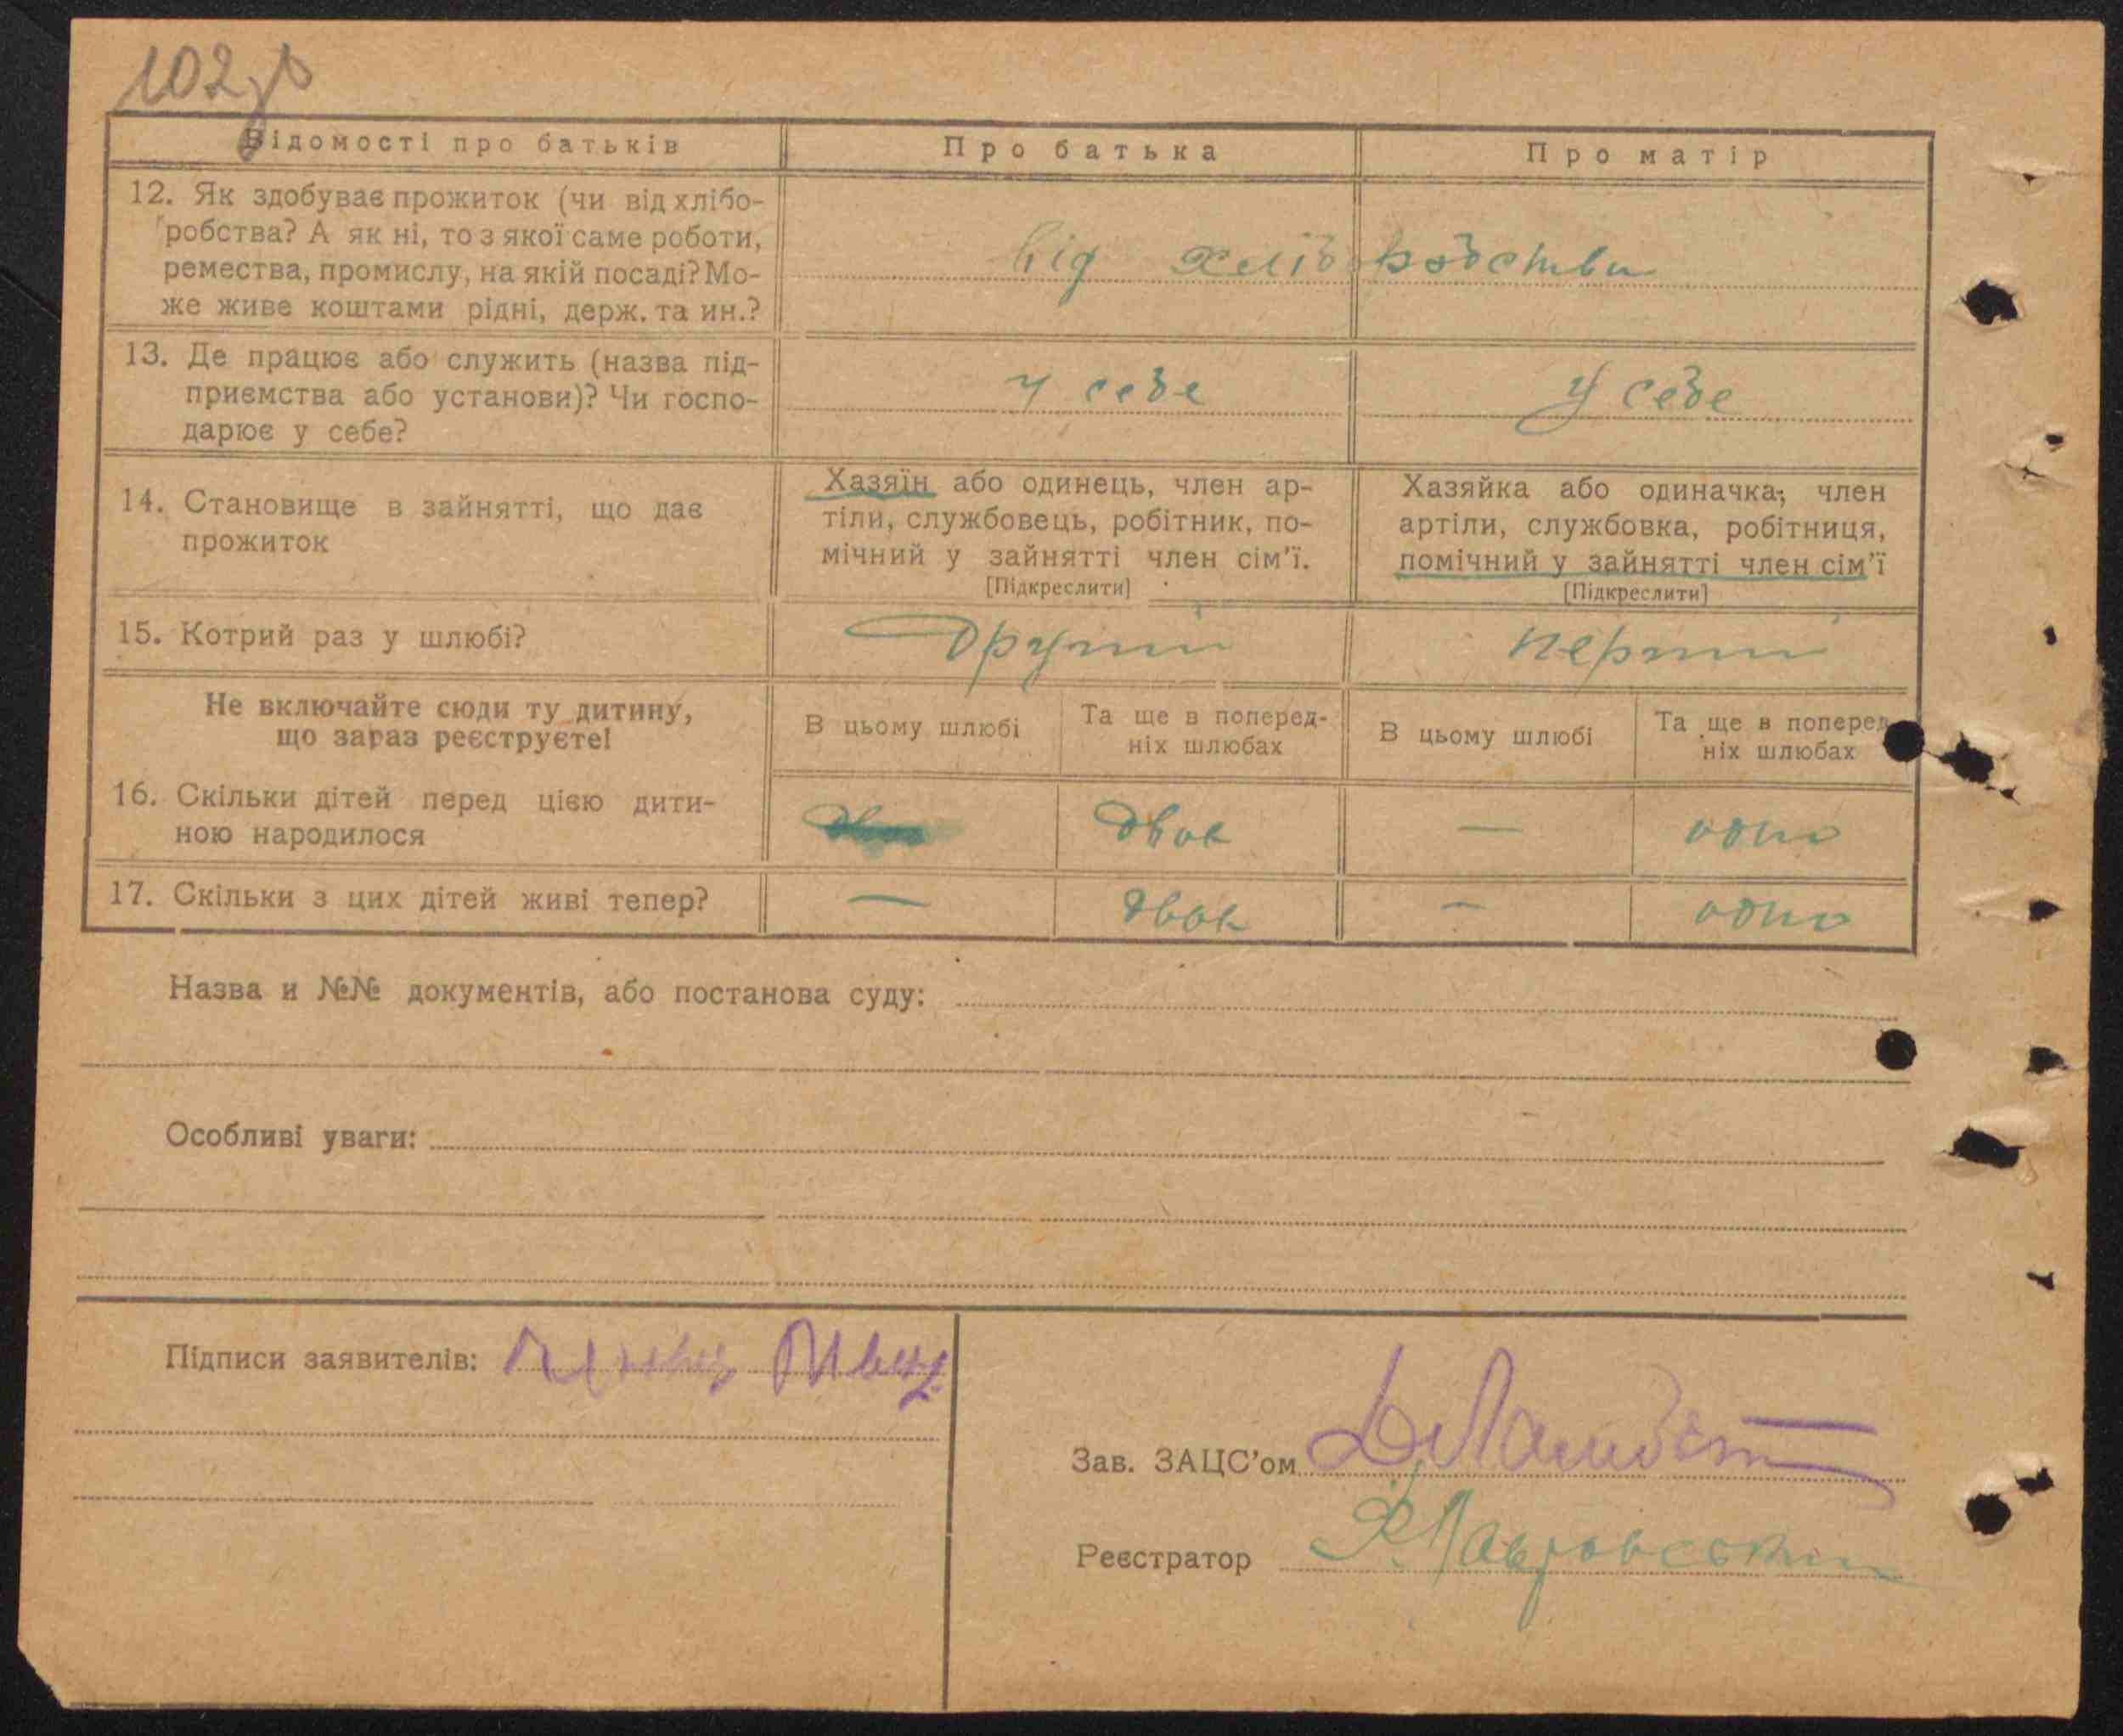 102
Відомості про батьків
Про батька
Про матір
12. Як здобуває прожиток (чи від хлібо-
робства? А як ні, то з якої саме роботи,
ремества, промислу, на якій посаді? Мо-
же живе коштами рідні, держ. та ин.?
від хлібробства
13. Де працює або служить (назва під-
приємства або установи)? Чи госпо-
дарює у себе?
у себе
У себе
14. Становище в зайнятті, що дає
прожиток
Хазяїн або одинець, член ар-
тіли, службовець, робітник, по-
мічний у зайнятті член сім'ї.
[Підкреслити]
Хазяйка або одиначка, член
артіли, службовка, робітниця,
помічний у зайнятті член сім'ї
[Підкреслити]
15. Котрий раз у шлюбі?
другий
перший
Не включайте сюди ту дитину,
що зараз реєструєте!
В цьому шлюбі
Та ще в поперед-
ніх шлюбах
В цьому шлюбі
Та ще в поперед-
ніх шлюбах
16. Скільки дітей перед цією дити-
ною народилося
двое
—
одно
17. Скільки з цих дітей живі тепер?
—
двое
—
одно
Назва и №№ документів, або постанова суду:
Особливі уваги:
Підписи заявителів:
Зав. ЗАЦС'ом
Реєстратор